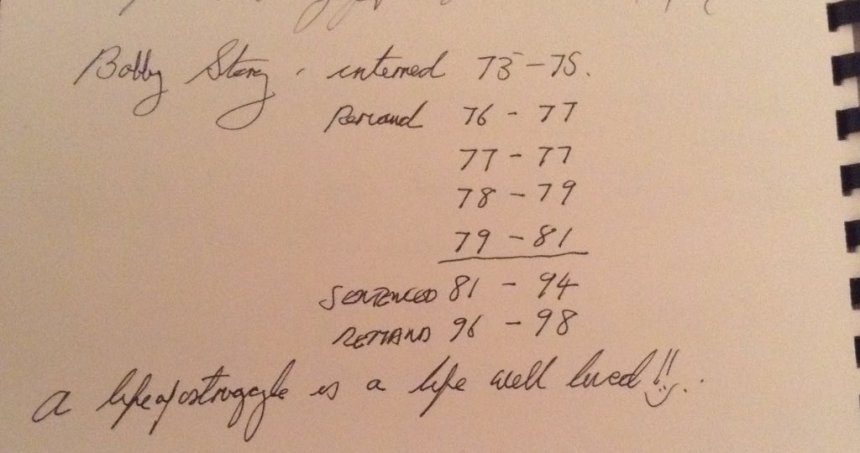 Bobby Storey. interned 73-75.
Remand 76 - 77
77 - 77
78 - 79
79 - 81
SENTENCED 81 - 94
REMAND 96 - 98
A life of struggle is a life well lived!!